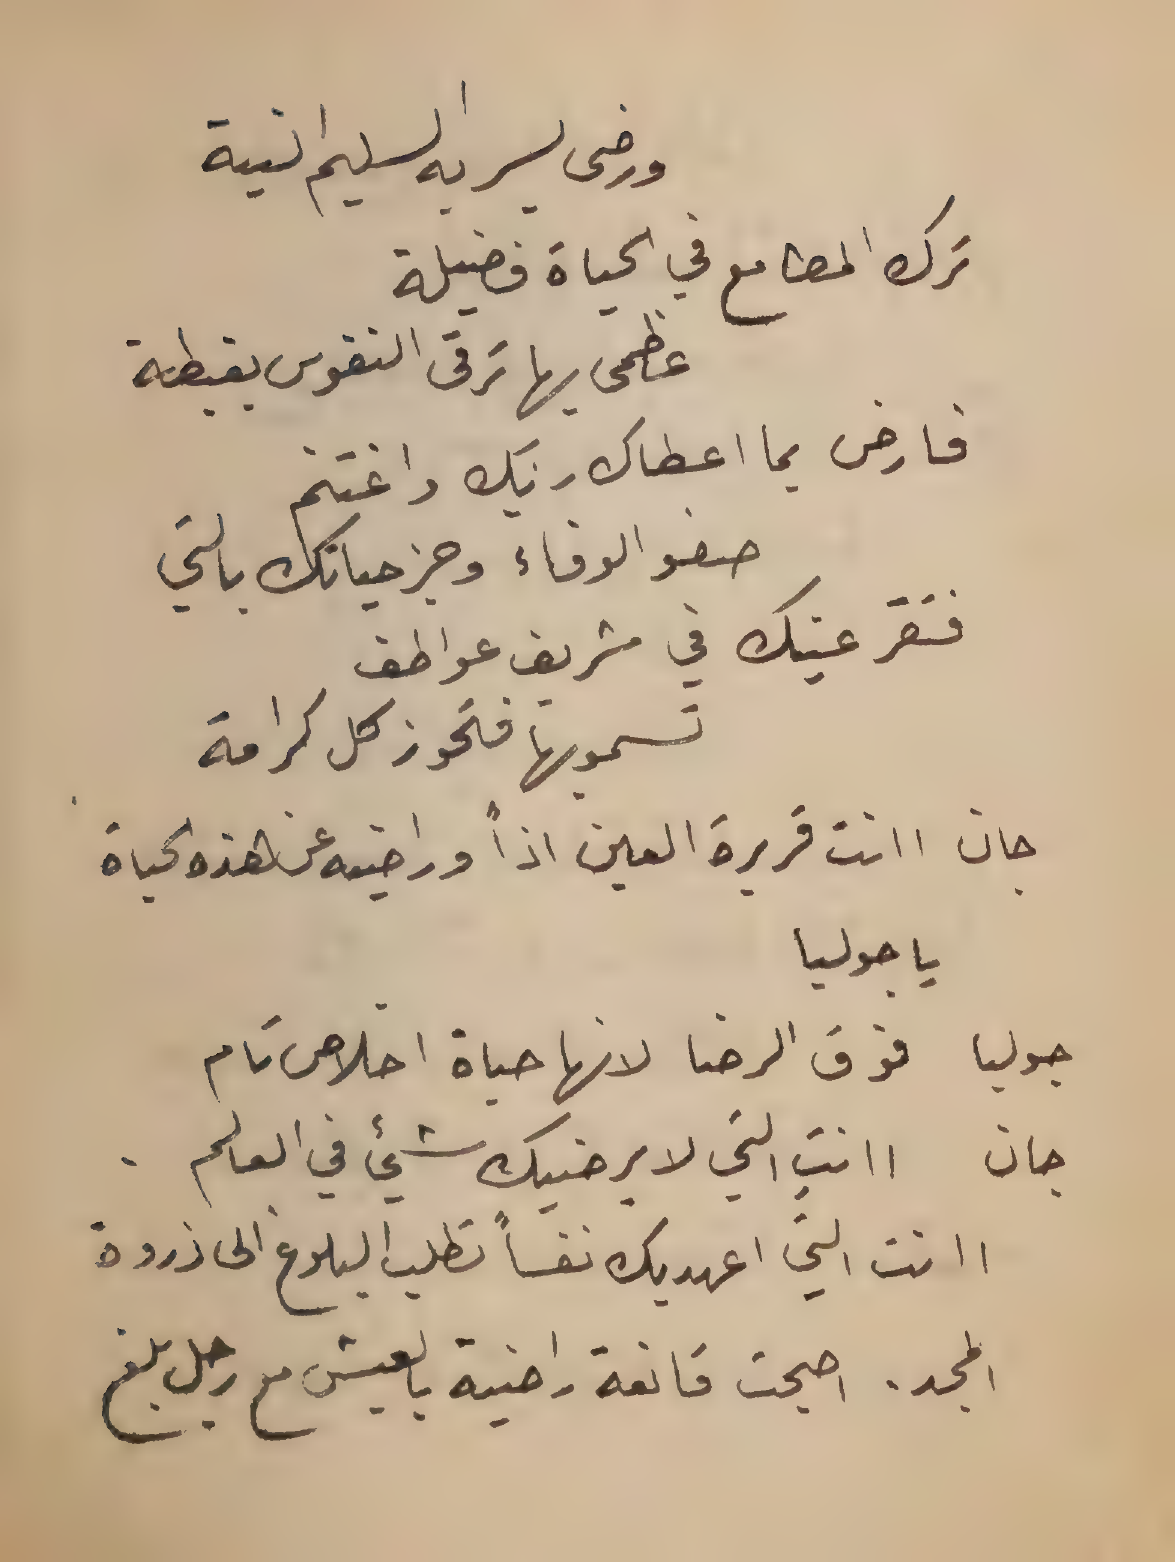 ورضى يسر به السليم النية
ترك المطامع في الحياة فضيلة
عظمى بها ترقى النفوس بغبطة
فارض بما اعطاك ربك واغتنم
صفو الوفاء وجز حياتك بالتي
فتقر عينك في شريف عواطف
تسمو بها فتحوز كل كرامة
جان اانت قريرة العين اذاً وراضيه عن هذه الحياة
يا جوليا
جوليا فوق الرضا لانها حياة اخلاص تام
جان اانتِ التي لا يرضيك شئ في العالم .
اانت التي اعهد بك نفساً تطلب البلوغ الى ذروة
المجد . اصبحت قانعة راضية بالعيش مع رجل بلغ